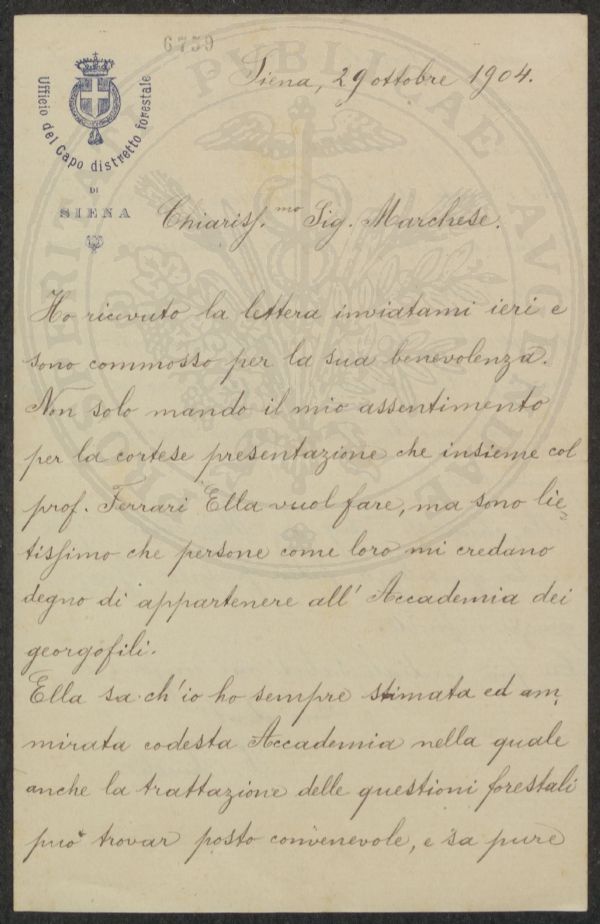 6739
Ufficio del Capo distretto forestale
DI
SIENA
Siena, 29 ottobre 1904.
Chiariss.mo Sig. Marchese.
Ho ricevuto la lettera inviatami ieri e
sono commosso per la sua benevolenza.
Non solo mando il mio assentimento
per la cortese presentazione che insieme col
prof. Ferrari Ella vuol fare, ma sono lie=
tissimo che persone come loro mi credano
degno di appartenere all' Accademia dei
georgofili.
Ella sa ch'io ho sempre stimata ed am,
mirata codesta Accademia nella quale
anche la trattazione delle questioni forestali
può trovar posto convenevole, e sa pure
PROSPERITATI PUBLICAE AUGENDAE